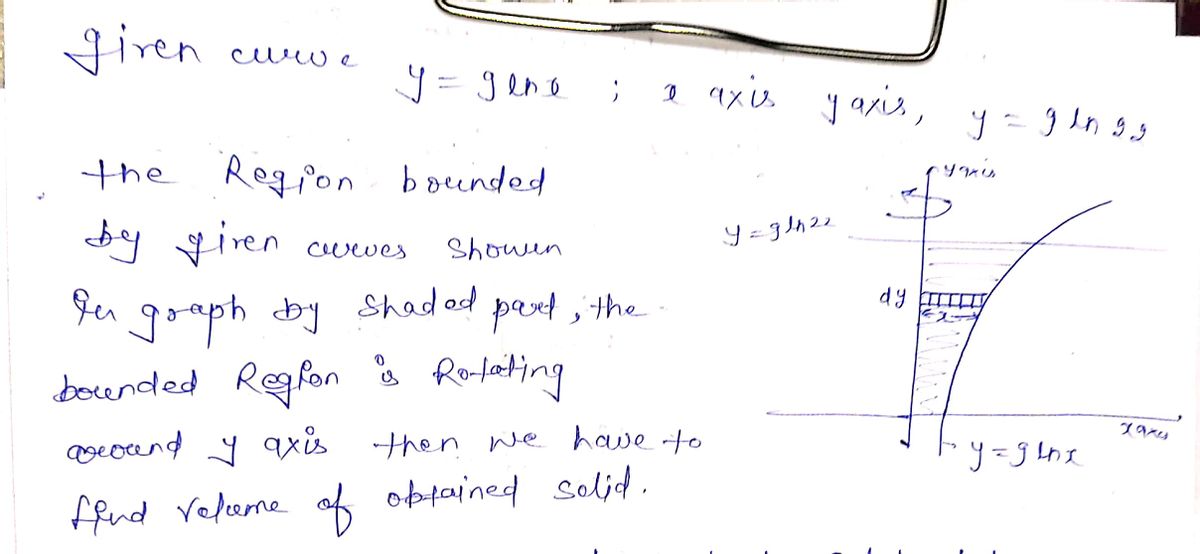 given curve y = 9 ln x ; x axis y axis, y = 9 ln 22
the Region bounded
by given curves shown
in graph by shaded part, the
bounded Region is Rotating
around y axis then we have to
find volume of obtained solid.
y axis
y = 9 ln 22
dy
x
x axis
y = 9 ln x